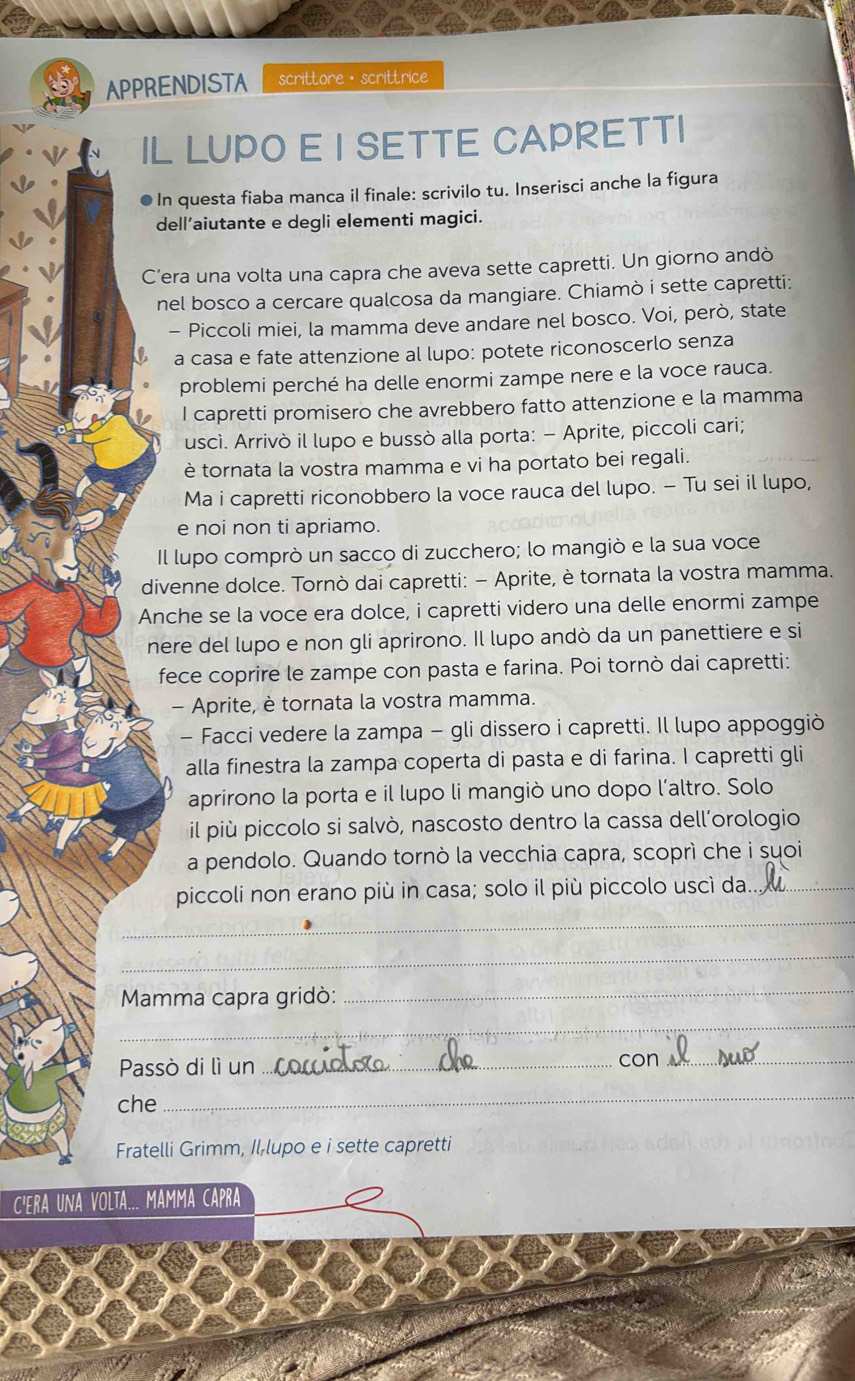 APPRENDISTA scrittore • scrittrice
IL LUPO E I SETTE CAPRETTI
● In questa fiaba manca il finale: scrivilo tu. Inserisci anche la figura
dell'aiutante e degli elementi magici.
C'era una volta una capra che aveva sette capretti. Un giorno andò
nel bosco a cercare qualcosa da mangiare. Chiamò i sette capretti:
– Piccoli miei, la mamma deve andare nel bosco. Voi, però, state
a casa e fate attenzione al lupo: potete riconoscerlo senza
problemi perché ha delle enormi zampe nere e la voce rauca.
I capretti promisero che avrebbero fatto attenzione e la mamma
uscì. Arrivò il lupo e bussò alla porta: – Aprite, piccoli cari;
è tornata la vostra mamma e vi ha portato bei regali.
Ma i capretti riconobbero la voce rauca del lupo. – Tu sei il lupo,
e noi non ti apriamo.
Il lupo comprò un sacco di zucchero; lo mangiò e la sua voce
divenne dolce. Tornò dai capretti: – Aprite, è tornata la vostra mamma.
Anche se la voce era dolce, i capretti videro una delle enormi zampe
nere del lupo e non gli aprirono. Il lupo andò da un panettiere e si
fece coprire le zampe con pasta e farina. Poi tornò dai capretti:
– Aprite, è tornata la vostra mamma.
– Facci vedere la zampa – gli dissero i capretti. Il lupo appoggiò
alla finestra la zampa coperta di pasta e di farina. I capretti gli
aprirono la porta e il lupo li mangiò uno dopo l'altro. Solo
il più piccolo si salvò, nascosto dentro la cassa dell'orologio
a pendolo. Quando tornò la vecchia capra, scoprì che i suoi
piccoli non erano più in casa; solo il più piccolo uscì da... lì
Mamma capra gridò:
Passò di lì un cacciatore che con il suo
che
Fratelli Grimm, Il lupo e i sette capretti
C'ERA UNA VOLTA... MAMMA CAPRA